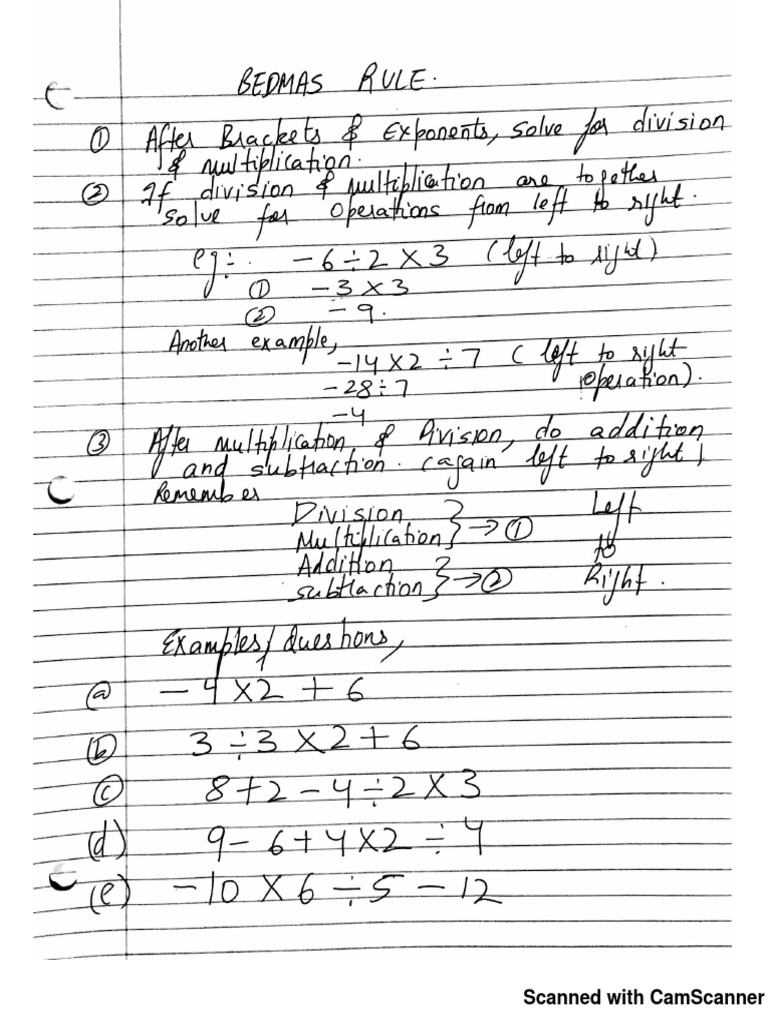 BEDMAS RULE.
① After Brackets & Exponents, solve for division
& multiplication.
② If division & multiplication are together
solve for operations from left to right.
eg:- -6÷2×3 (left to right)
① -3×3
② -9.
Another example,
-14×2÷7 (left to right
-28÷7 operation).
-4
③ After multiplication & Division, do addition
and subtraction. (again left to right)
Remember
Division } Left
Multiplication } → ① to
Addition }
subtraction } → ② Right.
Examples/Questions,
ⓐ -4×2+6
ⓑ 3÷3×2+6
ⓒ 8+2-4÷2×3
(d) 9-6+4×2÷4
(e) -10×6÷5-12
Scanned with CamScanner